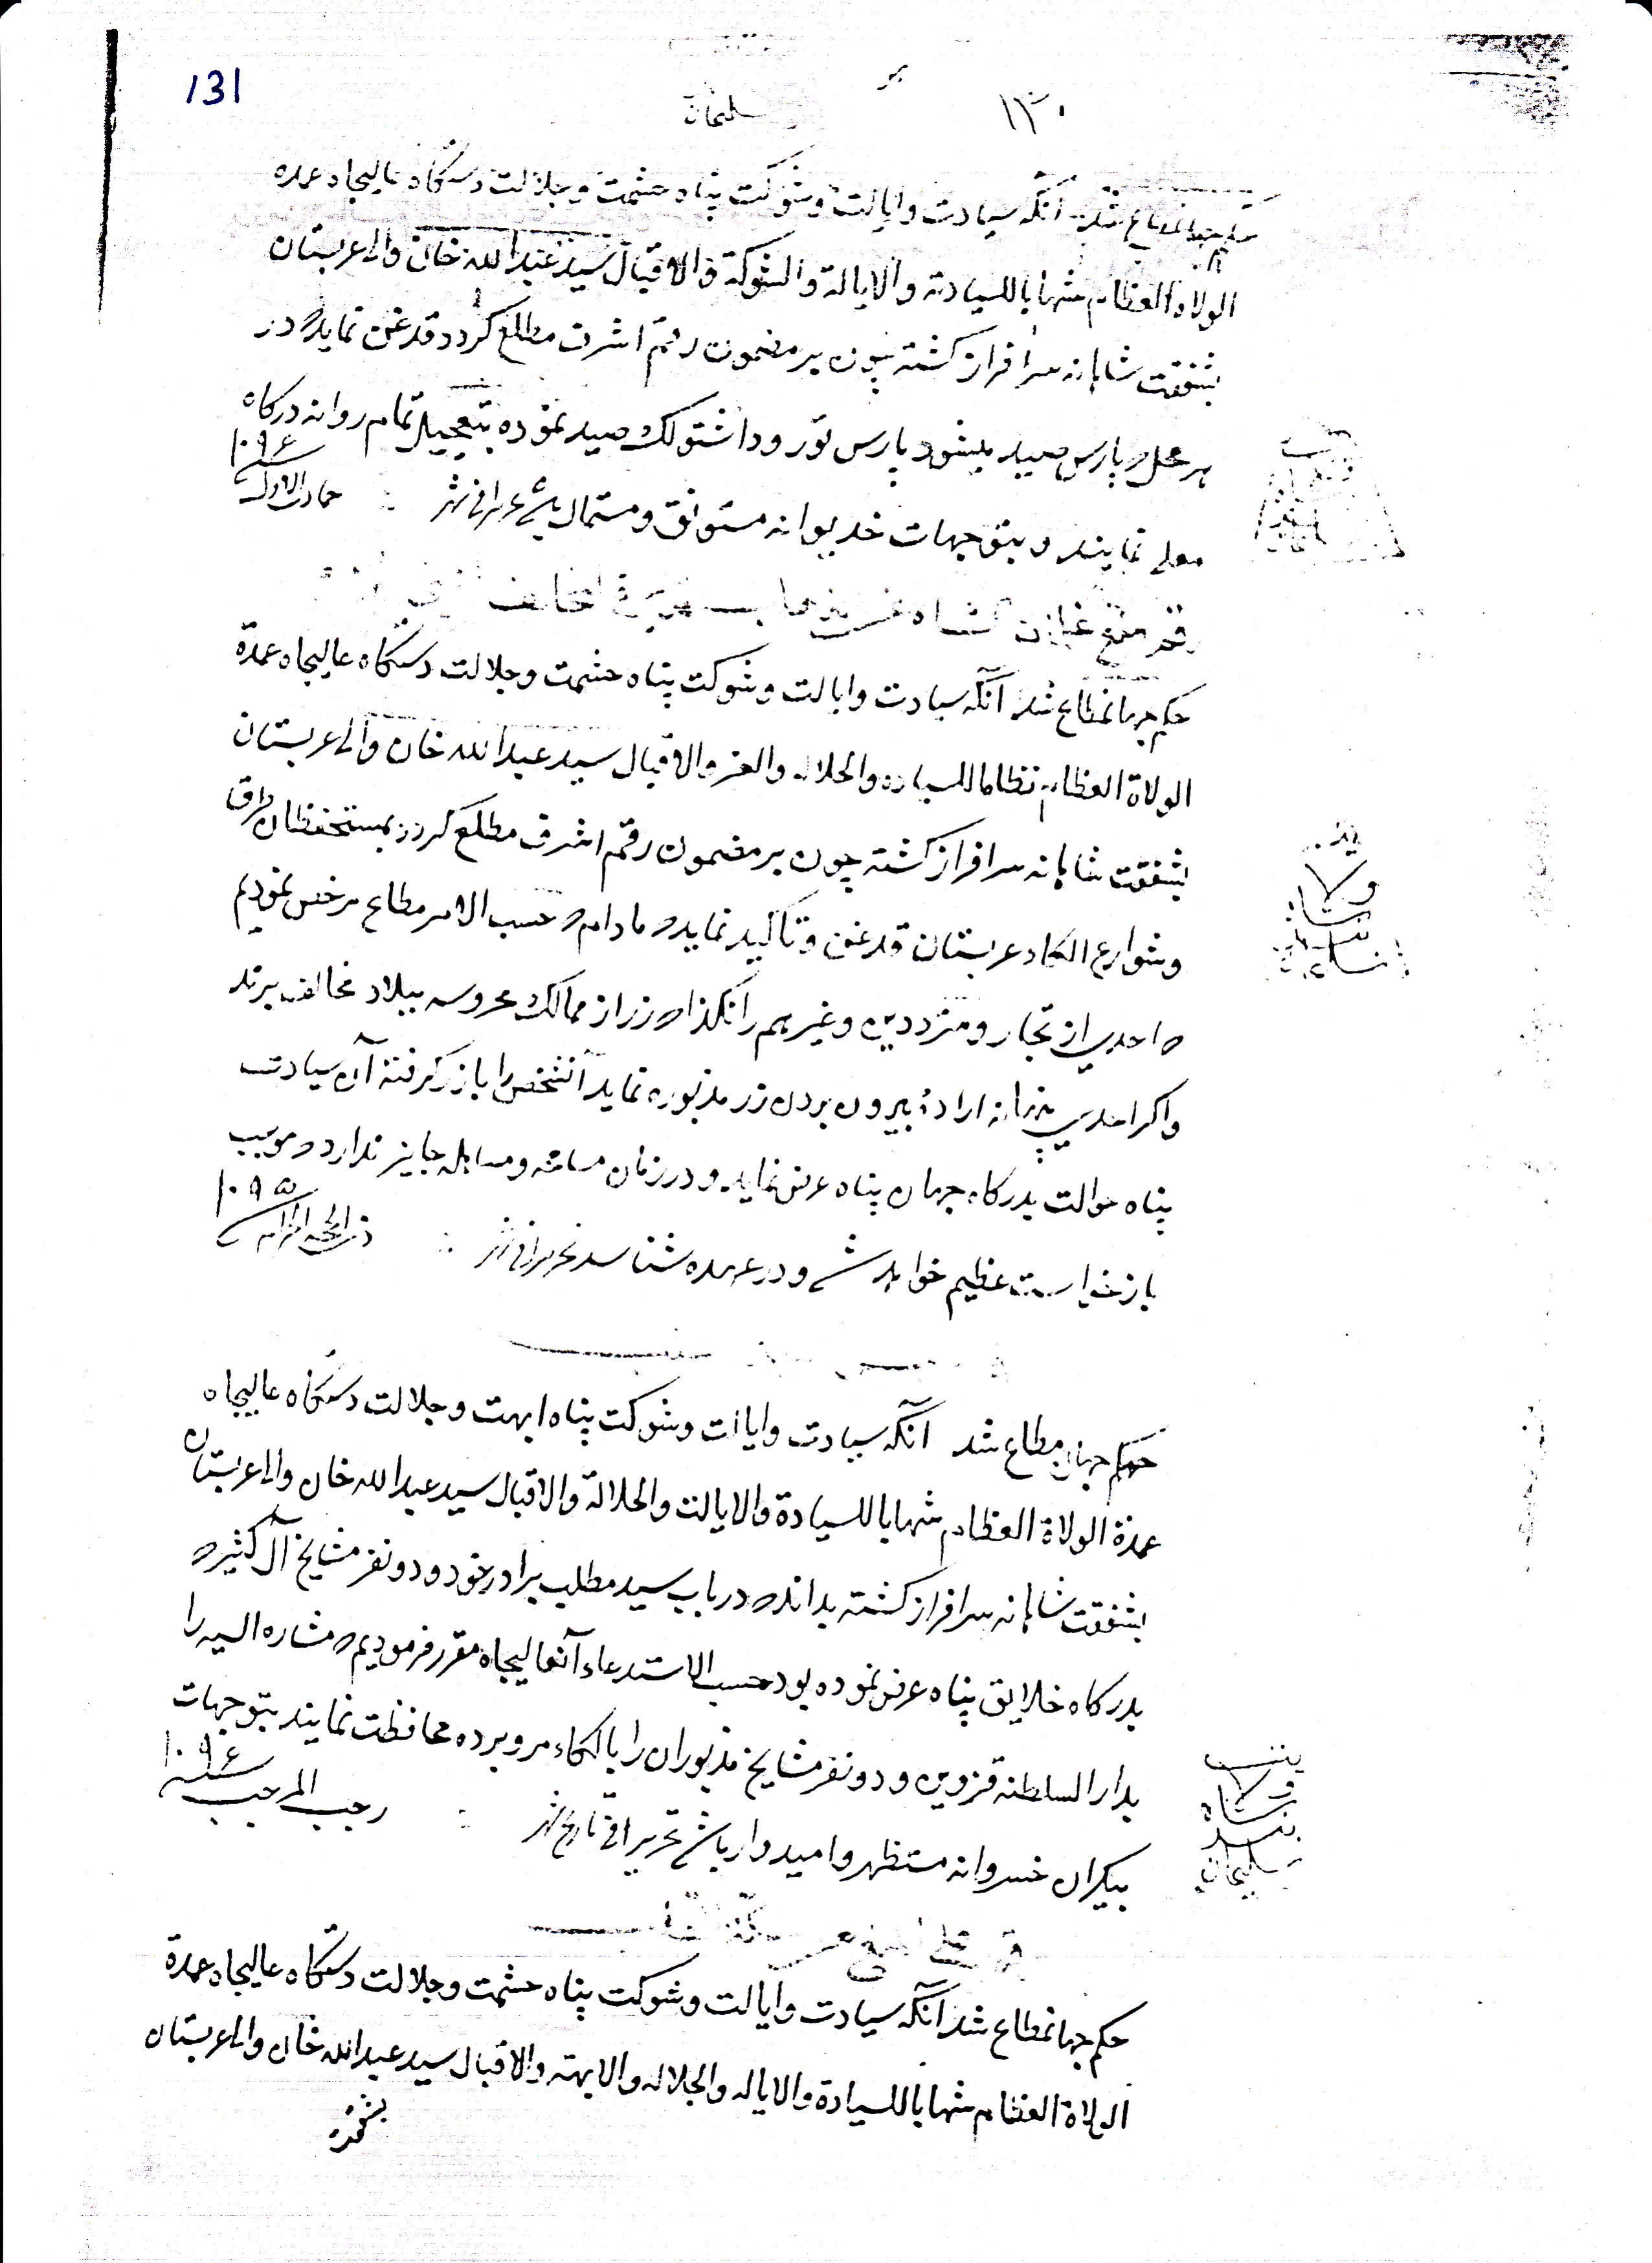 131
۱۳۰
سلیمان
حکم جهانمطاع شد آنکه سیادت و ایالت و شوکت پناه حشمت و جلالت دستکاه عالیجاه عمده
الولاة العظام شهابا للسیادة و الایالة والشوکة والاقبال سید عبدالله خان والی عربستان
بشفقت شاهانه سرافراز کشته چون بر مضمون رقم اشرف مطلع کردد قدغن نماید که در
هر محل که پارس صید میشود پارس صید نموده بتعجیل تمام روانه درکاه
معلی نمایند و بتوجهات خدیوانه مستوثق و مستمال باشد تحریرا فی شهر جمادی الاول ۱۰۹۶
رقم منع
حکم جهانمطاع شد آنکه سیادت و ایالت و شوکت پناه حشمت و جلالت دستکاه عالیجاه عمدة
الولاة العظام نظاما للسیاده والجلاله والعز والاقبال سید عبدالله خان والی عربستان
بشفقت شاهانه سرافراز کشته چون بر مضمون رقم اشرف مطلع کردد بمستحفظان طرق
و شوارع الکاء عربستان قدغن و تاکید نماید که مادام که حسب الامر مطاع مرخص نمودیم
که احدی از تجار و مترددین و غیرهم را نکذارد که زر از ممالک محروسه ببلاد مخالف برند
و اکر احدی پنهانه اراده بیرون بردن زر مذبوره نماید آنشخص را باز کرفته آن سیادت
پناه حوالت بدرکاه جهان پناه عرض نماید و در آن مسامحه و مساهله جایز ندارد که موجب
بازخواست عظیم خواهد شد و در عهده شناسد تحریرا فی شهر ذی الحجه الحرام ۱۰۹۵
حکم جهان مطاع شد آنکه سیادت و ایالت و شوکت پناه ابهت و جلالت دستکاه عالیجاه
عمدة الولاة العظام شهابا للسیادة والایالت والجلالة والاقبال سید عبدالله خان والی عربستان
بشفقت شاهانه سرافراز کشته بداند که در باب سید مطلب برادر خود و دو نفر مشایخ آل کثیر که
بدرکاه خلایق پناه عرض نموده بود حسب الاستدعاء آنعالیجاه مقرر فرمودیم که مشارالیه را
بدار السلطنه قزوین و دو نفر مشایخ مذبوران را بالکاء مرو برده محافظت نمایند بتوجهات
بیکران خسروانه مستظهر و امیدوار باشد تحریرا فی تاریخ شهر رجب المرجب ۱۰۹۶
بنده
شاه
ولایت
سلیمان
حکم جهانمطاع شد آنکه سیادت و ایالت و شوکت پناه حشمت و جلالت دستکاه عالیجاه عمدة
الولاة العظام شهابا للسیادة والایاله والجلاله والابهته والاقبال سید عبدالله خان والی عربستان
بشفقت